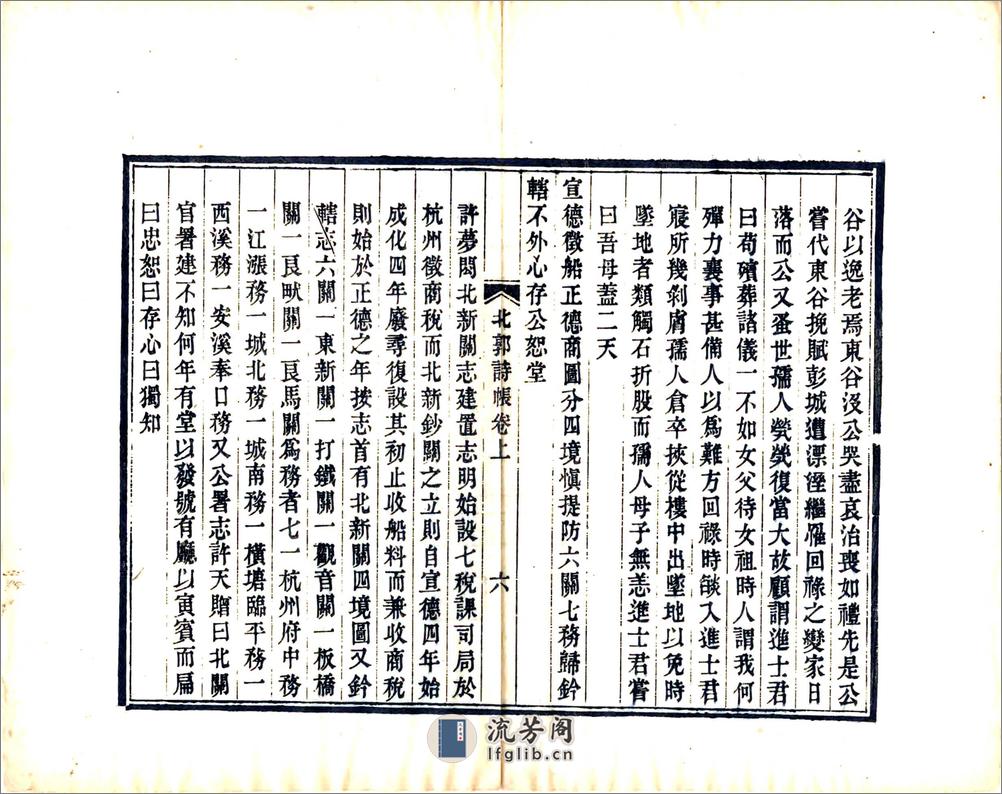 谷以逸老焉東谷沒公哭盡哀治喪如禮先是公
嘗代東谷挽賦彭城遭漂溼繼罹回祿之變家日
落而公又蚤世孺人煢煢復當大故顧謂進士君
曰苟殯葬諸儀一不如女父待女祖時人謂我何
殫力襄事甚備人以爲難方回祿時燄入進士君
寢所幾剝膚孺人倉卒挾從樓中出墜地以免時
墜地者類觸石折股而孺人母子無恙進士君嘗
曰吾母蓋二天
宣德徵船正德商圖分四境愼提防六關七務歸鈐
轄不外心存公恕堂
北郭詩帳卷上
六
許夢閎北新關志建置志明始設七稅課司局於
杭州徵商稅而北新鈔關之立則自宣德四年始
成化四年廢尋復設其初止收船料而兼收商稅
則始於正德之年按志首有北新關四境圖又鈐
轄志六關一東新關一打鐵關一觀音關一板橋
關一良畎關一良馬關爲務者七一杭州府中務
一江漲務一城北務一城南務一橫塘臨平務一
西溪務一安溪奉口務又公署志許天贈曰北關
官署建不知何年有堂以發號有廳以寅賓而扁
曰忠恕曰存心曰獨知
流芳阁
lfglib.cn